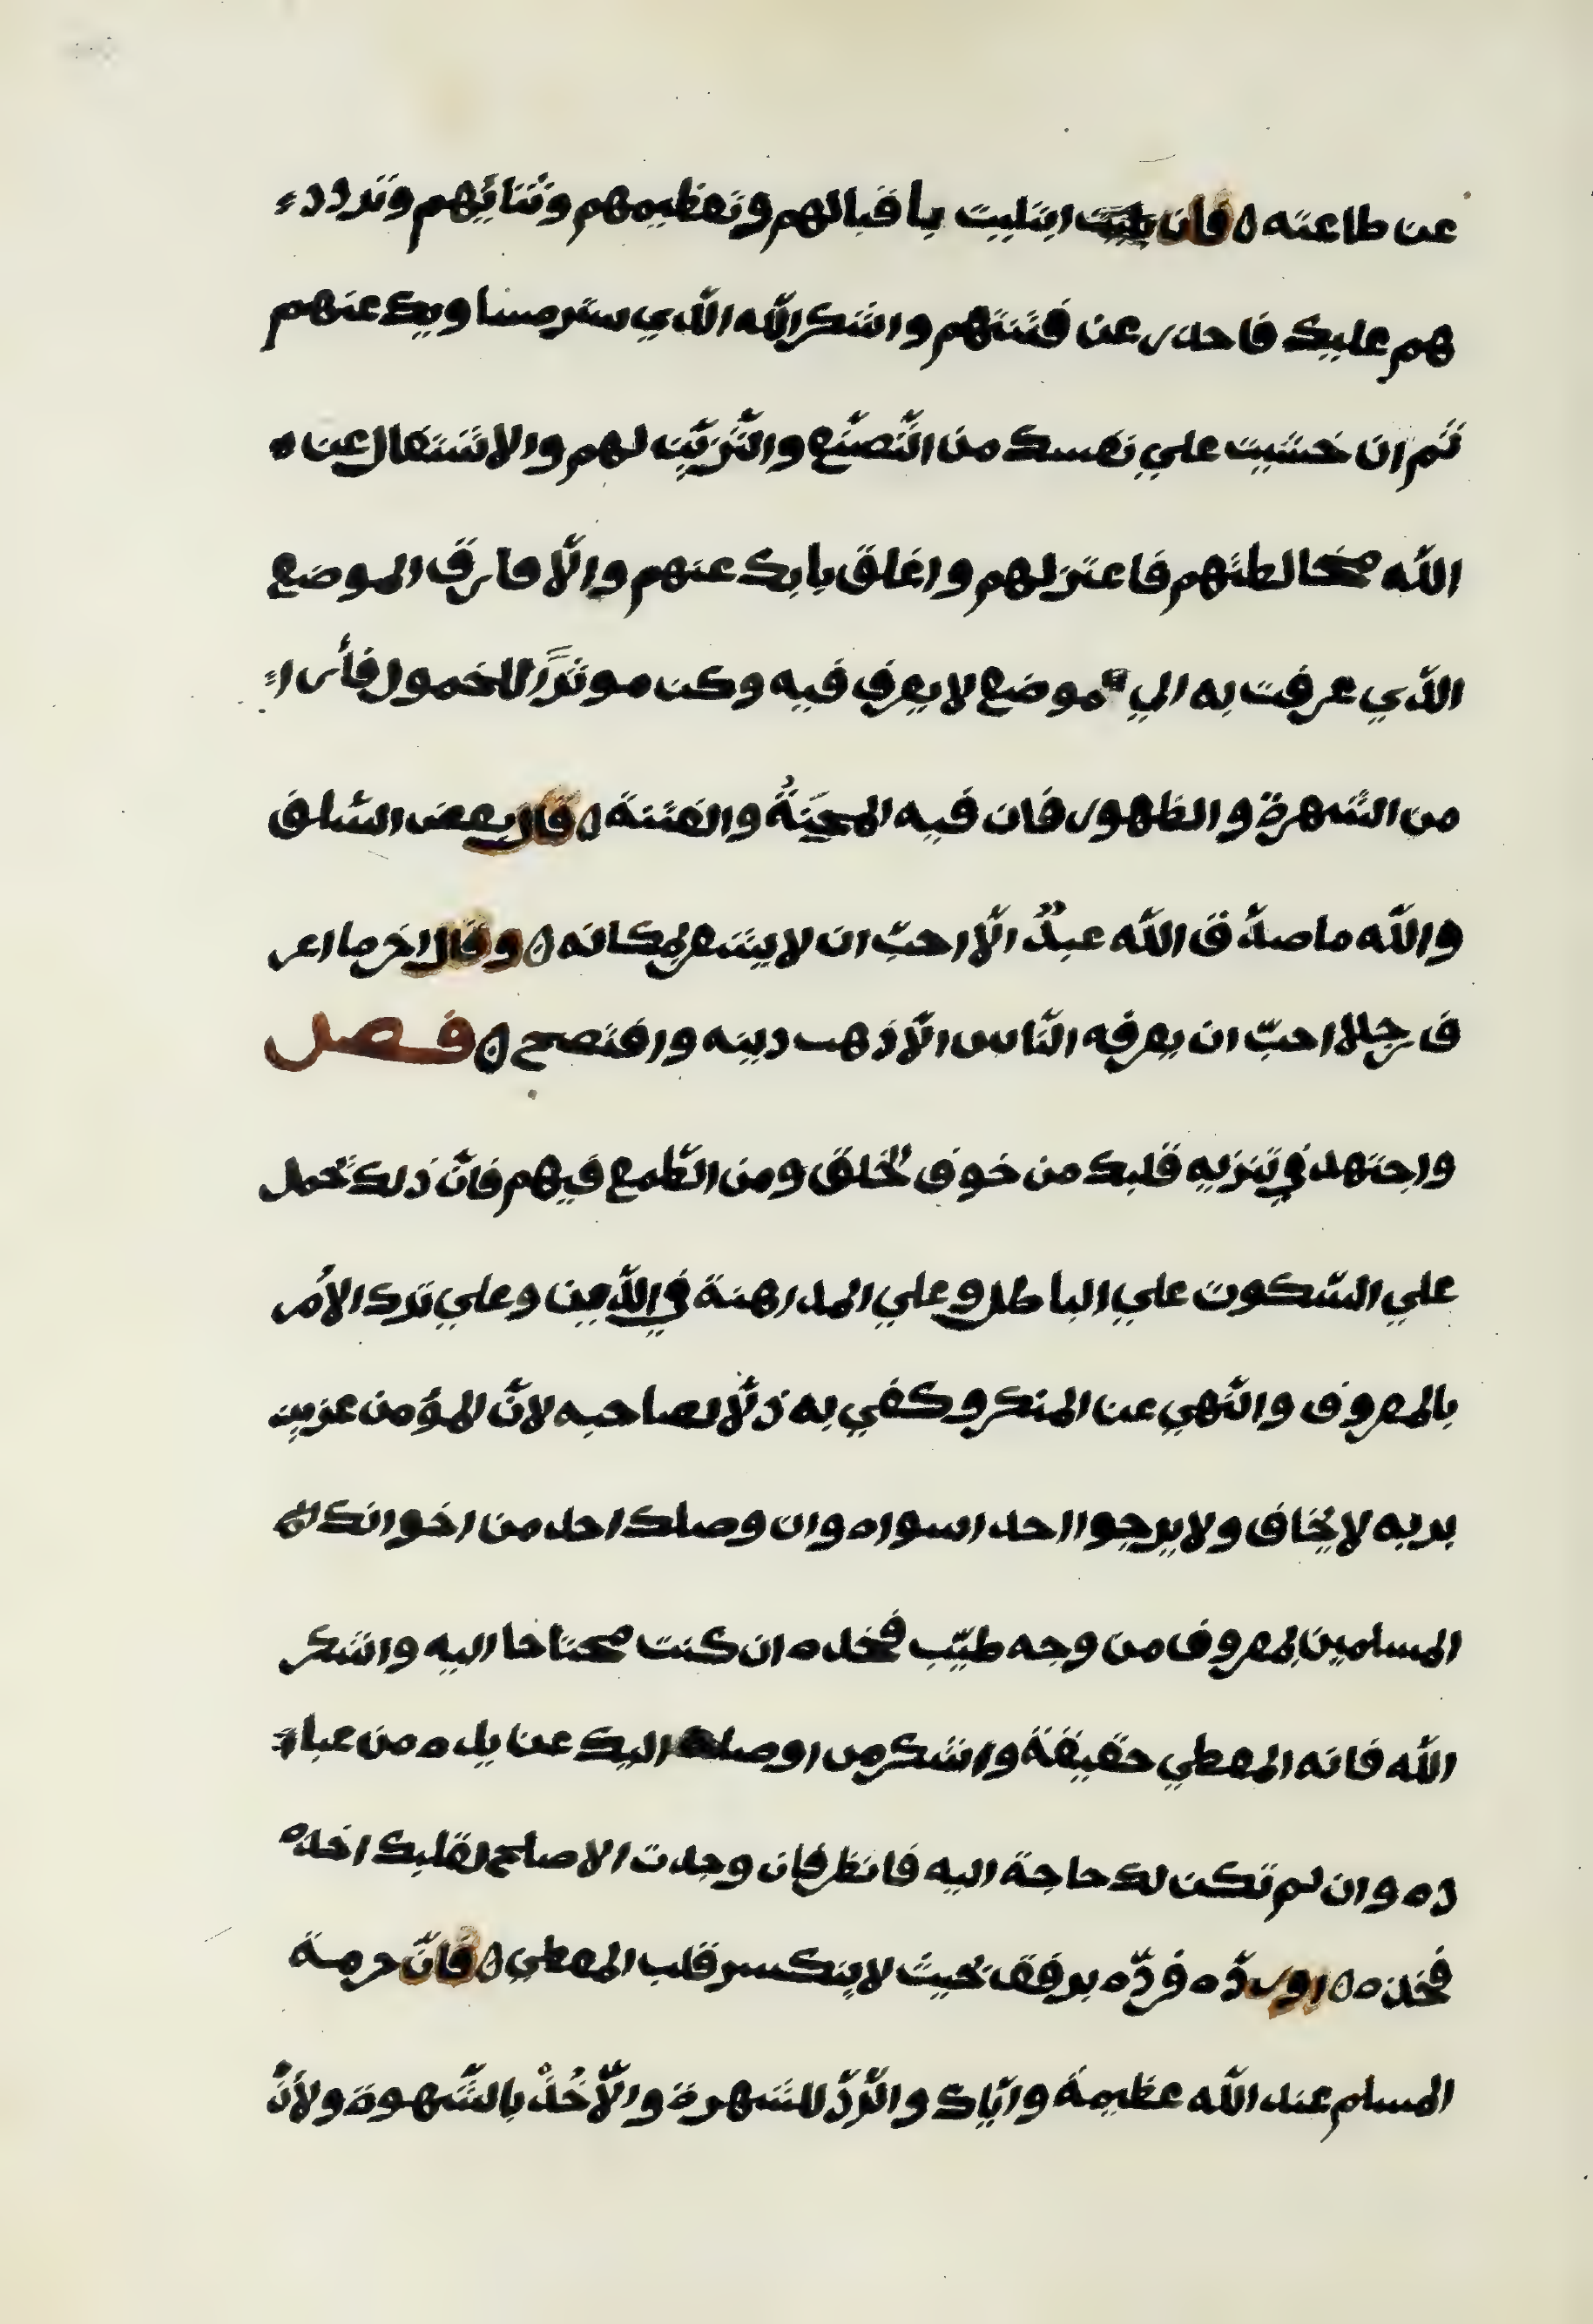 عن طاعته ۵ فان ابتليت باقبالهم وتعظيمهم وثنائهم وتردد
هم عليك فاحذر عن فتنتهم واشكر الله الّذي ستر مساويك عنهم
ثم ان خشيت علي نفسك من التّصنّع والتّزيّن لهم والاشتغال عن
الله مخالطتهم فاعتزلهم واغلق بابك عنهم والّا فارق الموضع
الّذي عرفت به الي موضع لا يعرف فيه وكن موثرًا للخمول فأرا
من الشّهرة والظهور فان فيه المحِنَةُ والفتنة ۵ قال بعض السّلف
والله ما صدّق الله عبدٌ الّا احبّ ان لا يشعر لمكانه ۵ وقال اخر ما اعر
ف رجلا احبّ ان يعرفه النّاس الّا ذهب دينه وافتضح ۵ فصل
واجتهد في تنزيه قلبك من خوف الخلق ومن الطّمع فيهم فانّ ذلك تحمل
علي السّكوت علي الباطل وعلي المداهنة في الدّين وعلي ترك الأمر
بالمعروف والنّهي عن المنكر وكفي به ذلًّا لصاحبه لانّ المؤمن عزيز
بربه لا يخاف ولا يرجوا احد اسواه وان وصلك احد من اخوانك
المسلمين لمعروف من وجه طيّب فخذه ان كنت محتاجا اليه واشكر
الله فانه المعطي حقيقة واشكر من اوصله اليك عن يده من عبا
ده وان لم تكن لك حاجة اليه فانظر فان وجدت الاصلح لقلبك اخذه
فخذه ۵ اورّده فردّه برفق بحيث لا ينكسر قلب المعطي ۵ فانّ حرمة
المسلم عند الله عظيمة وايّاك والرّدّ للشهرة والأخْذُ بالشّهوة ولأنْ